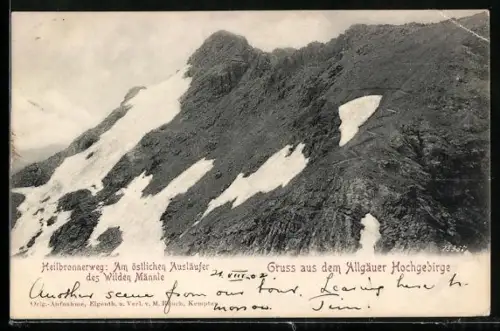 Heilbronnerweg: Am östlichen Ausläufer
des Wilden Männle
21.VIII.02
Gruss aus dem Allgäuer Hochgebirge
Another scene from our tour. Leaving here to
morrow. Jim.
Orig.-Aufnahme, Eigenth. u. Verl. v. M. Kempten